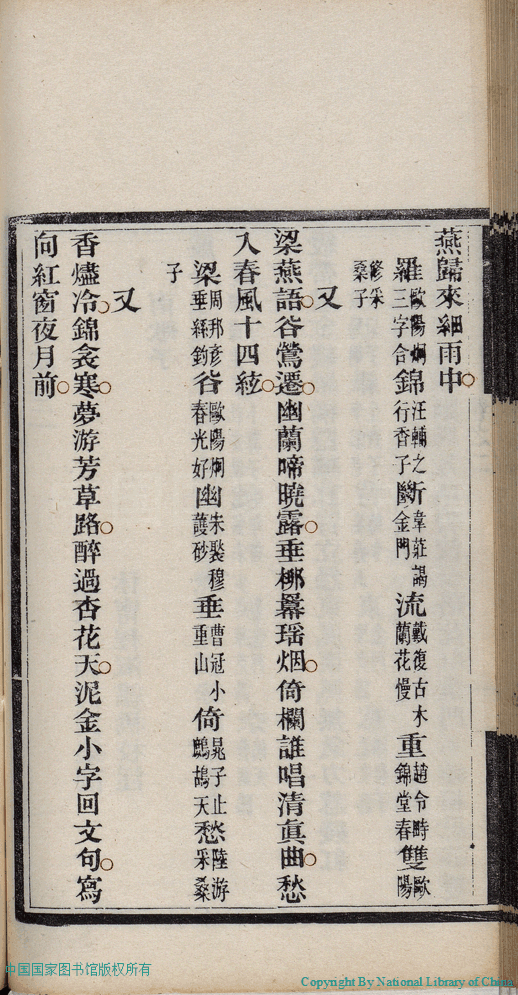 燕歸來細雨中
羅歐陽炯三字令錦汪輔之行香子斷韋莊謁金門流戴復古木蘭花慢重趙令畤錦堂春雙歐陽
修采桑子
又
梁燕語谷鶯遷幽蘭啼曉露垂桞羃瑶烟倚欄誰唱清眞曲愁
入春風十四絃
梁周邦彦垂絲釣谷歐陽炯春光好幽宋褧穆護砂垂曹冠小重山倚晁子止鷓鴣天愁陸游采桑
子
又
香燼冷錦衾寒夢游芳草路醉過杏花天泥金小字回文句寫
向紅窗夜月前
中国国家图书馆版权所有
Copyright By National Library of China